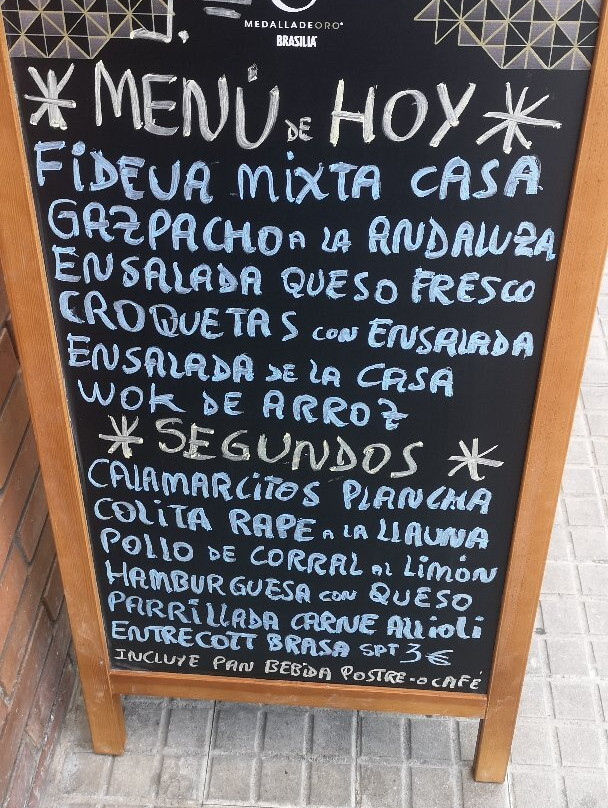 MEDALLADEORO
BRASILIA
* MENÚ DE HOY *
FIDEUA MIXTA CASA
GAZPACHO A LA ANDALUZA
ENSALADA QUESO FRESCO
CROQUETAS CON ENSALADA
ENSALADA DE LA CASA
WOK DE ARROZ
* SEGUNDOS *
CALAMARCITOS PLANCHA
COLITA RAPE A LA LLAUNA
POLLO DE CORRAL AL LIMÓN
HAMBURGUESA CON QUESO
PARRILLADA CARNE ALLIOLI
ENTRECOTT BRASA SPT 3€
INCLUYE PAN BEBIDA POSTRE-O CAFÉ